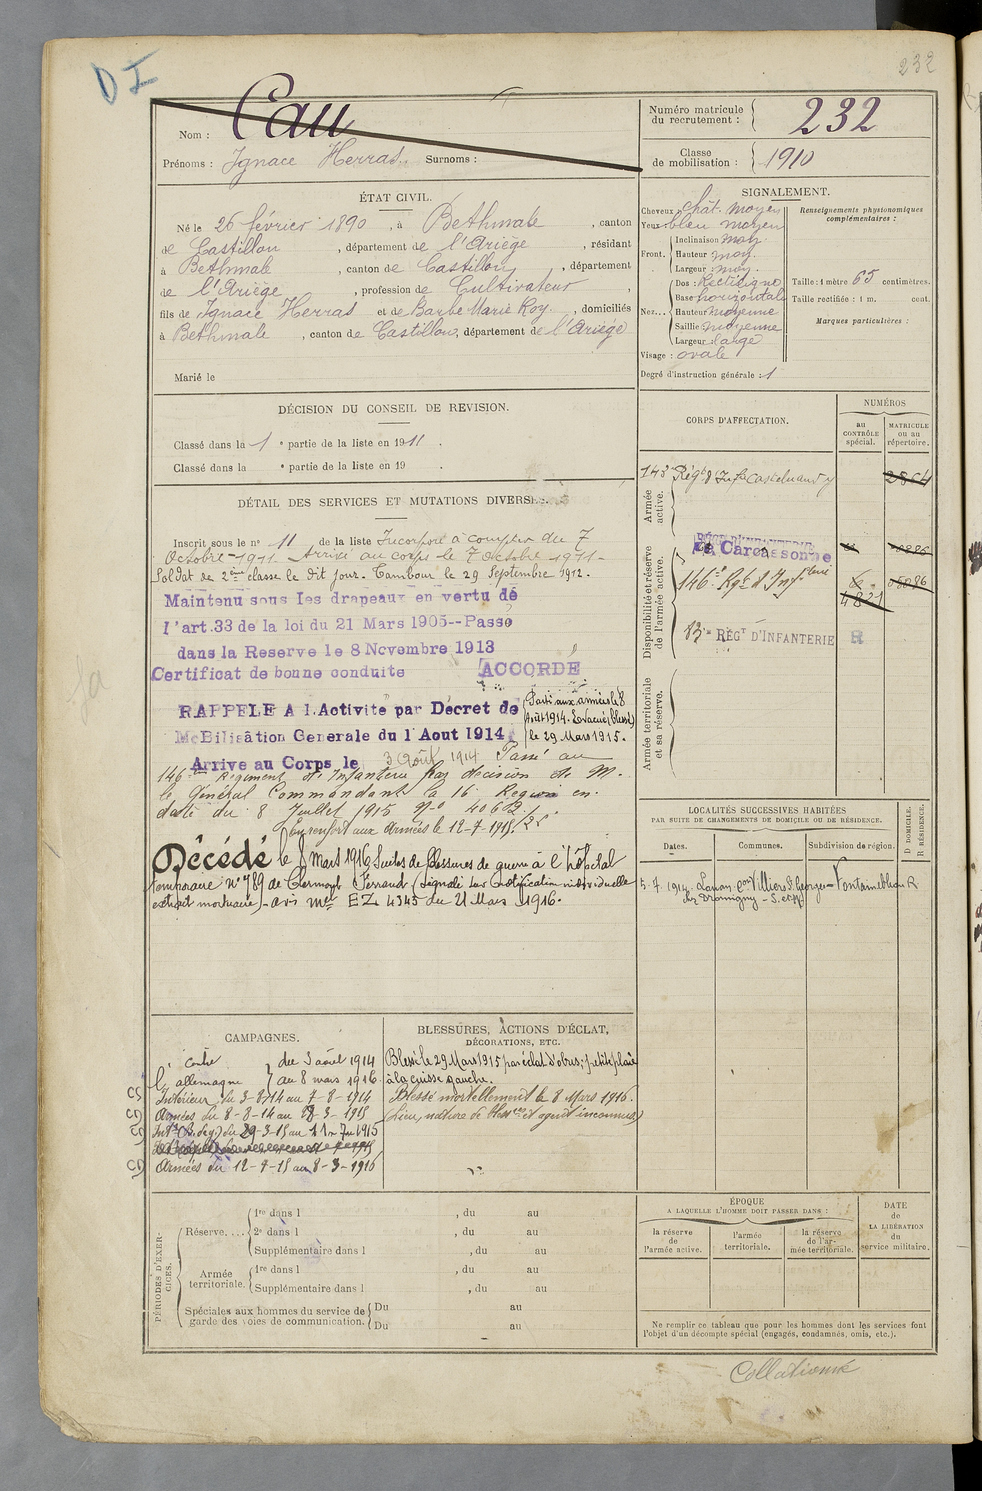 D I
232
Nom : Cau
Prénoms : Ignace Herras. Surnoms :
Numéro matricule
du recrutement : 232
Classe
de mobilisation : 1910
ÉTAT CIVIL.
Né le 26 février 1890, à Bethmale, canton
de Castillon, département de l'Ariège, résidant
à Bethmale, canton de Castillon, département
de l'Ariège, profession de Cultivateur,
fils de Ignace Herras et de Barbe Marie Roy, domiciliés
à Bethmale, canton de Castillon, département de l'Ariège
Marié le
SIGNALEMENT.
Cheveux chât. moyen
Yeux bleu moyen
Front. Inclinaison moy.
Hauteur moy.
Largeur moy.
Nez... Dos : Rectiligne
Base horizontale
Hauteur moyenne
Saillie moyenne
Largeur : large
Visage : ovale
Degré d'instruction générale : 1
Renseignements physionomiques
complémentaires :
Taille : 1 mètre 65 centimètres.
Taille rectifiée : 1 m. cent.
Marques particulières :
DÉCISION DU CONSEIL DE REVISION.
Classé dans la 1 e partie de la liste en 1911.
Classé dans la e partie de la liste en 19 .
CORPS D'AFFECTATION.
NUMÉROS
au
CONTRÔLE
spécial.
MATRICULE
ou au
répertoire.
Armée
active.
143e Régt d'Infie Castelnaudary
2864
Disponibilité et réserve
de l'armée active.
RÉGt D'INFANTERIE
de Carcassonne
146e Rgt d'Infanterie
4821
13e RÉGt D'INFANTERIE
R
Armée territoriale
et sa réserve.
DÉTAIL DES SERVICES ET MUTATIONS DIVERSES.
Inscrit sous le no 11 de la liste Incorporé à compter du 7
Octobre 1911. Arrivé au corps le 7 octobre 1911.
Soldat de 2ème classe le dit jour. Tambour le 29 Septembre 1912.
Maintenu sous les drapeaux en vertu de
l'art.33 de la loi du 21 Mars 1905--Passé
dans la Reserve le 8 Novembre 1913
Certificat de bonne conduite ACCORDÉ
RAPPELE A l'Activité par Décret de
MoBilisâtion Generale du 1 Aout 1914
Parti aux armées le 8
Août 1914. Evacué (blessé)
le 29 Mars 1915.
Arrive au Corps le 3 Août 1914 Passé au
146e Régiment d'Infanterie par décision de M.
le Général Commandant la 16e Région en
date du 8 Juillet 1915 No 4062
En renfort aux Armées le 12-7-1915.
Décédé le 8 Mars 1916 Suites de blessures de guerre à l'hôpital
temporaire no 789 de Clermont Ferrand (signalé sur notification individuelle
extrait mortuaire) - avis mel EZ 4345 du 21 Mars 1916.
LOCALITÉS SUCCESSIVES HABITÉES
PAR SUITE DE CHANGEMENTS DE DOMICILE OU DE RÉSIDENCE.
Dates.
Communes.
Subdivision de région.
D DOMICILE.
R RÉSIDENCE.
5.7.1914 Villiers St Georges - Fontainebleau R
CAMPAGNES.
contre l'allemagne du 3 août 1914
au 8 mars 1916
Intérieur du 3-8-14 au 7-8-1914
Armées du 8-8-14 au 28-3-1915
du 29-3-15 au 11-7-1915
Armées du 12-7-15 au 8-3-1916
BLESSURES, ACTIONS D'ÉCLAT,
DÉCORATIONS, ETC.
Blessé le 29 Mars 1915 par éclat d'obus ; petite plaie
à la cuisse gauche.
Blessé mortellement le 8 Mars 1916.
(lieu, nature de bless res et agent inconnus)
PÉRIODES D'EXER-
CICES.
Réserve....
1re dans l , du au
2e dans l , du au
Supplémentaire dans l , du au
Armée
territoriale.
1re dans l , du au
Supplémentaire dans l , du au
Spéciales aux hommes du service de
garde des voies de communication.
Du au
Du au
ÉPOQUE
A LAQUELLE L'HOMME DOIT PASSER DANS :
la réserve
de
l'armée active.
l'armée
territoriale.
la réserve
de l'ar-
mée territoriale.
DATE
de
LA LIBÉRATION
du
service militaire.
Ne remplir ce tableau que pour les hommes dont les services font
l'objet d'un décompte spécial (engagés, condamnés, omis, etc.).
Collationné